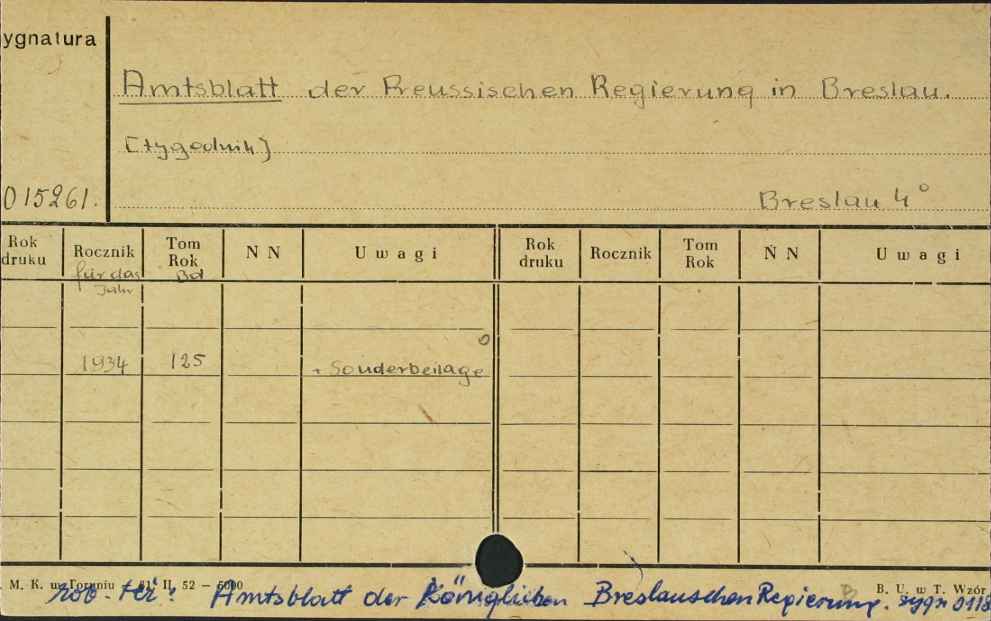 ygnatura
Amtsblatt der Preussischen Regierung in Breslau.
[tygodnik]
015261.
Breslau 4°
Rok druku Rocznik Tom Rok N N Uwagi Rok druku Rocznik Tom Rok N N Uwagi
für das Jahr Bd
1934 125 + Sonderbeilage
M. K. w Toruniu 61 II. 52 — 5000
B. U. w T. Wzór
zob. też: Amtsblatt der Königlichen Breslauschen Regierung. sygn 0118